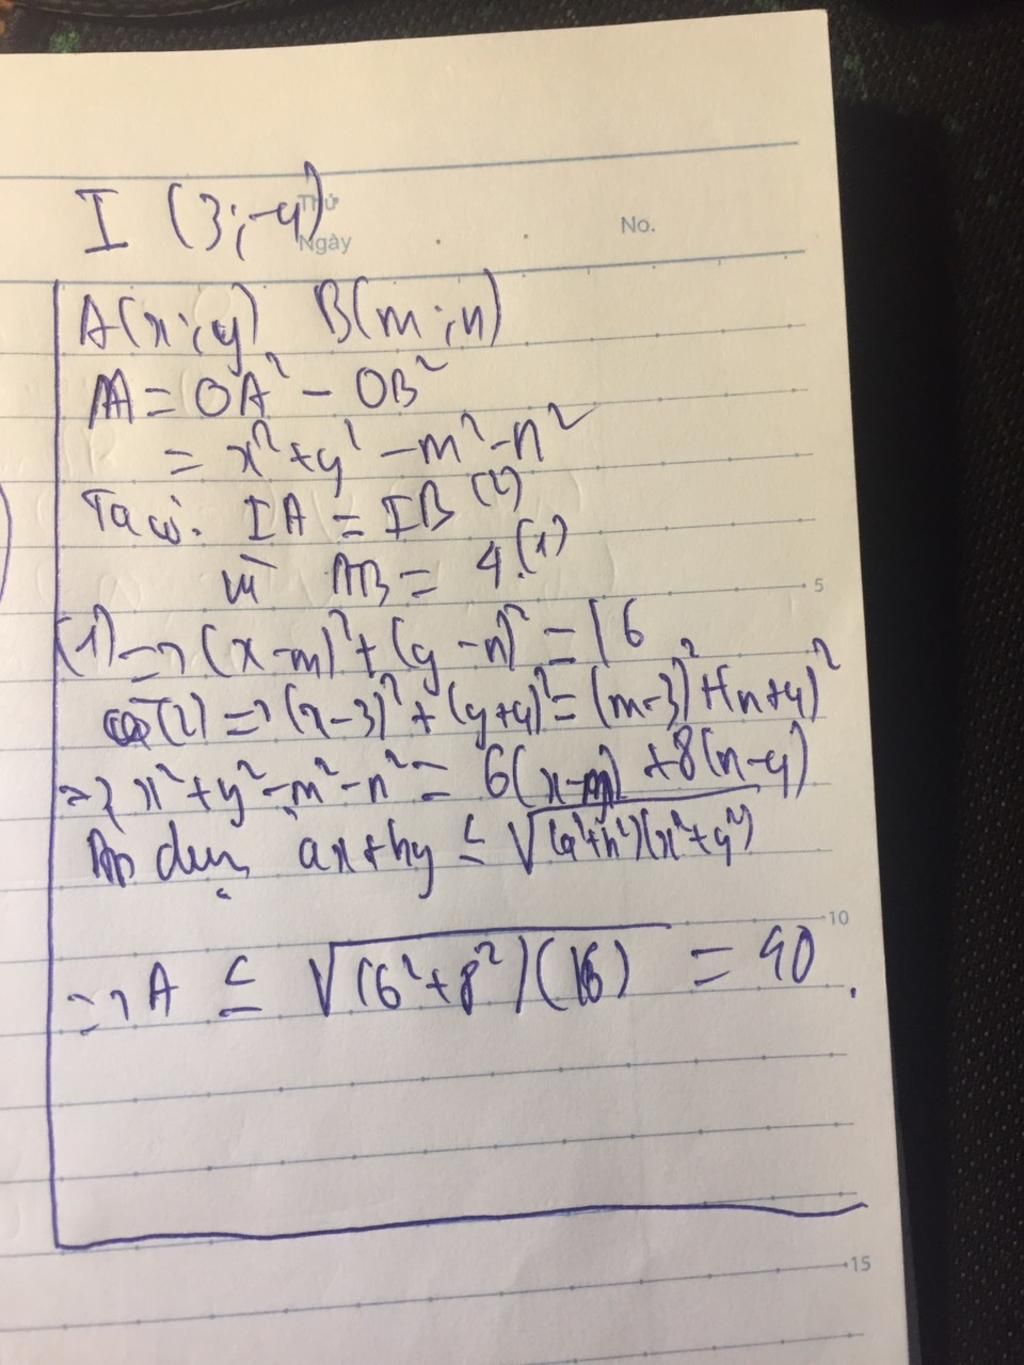 Thứ
Ngày
No.
I (3;-4)
A(x;y) B(m;n)
A = OA² - OB²
= x²+y²-m²-n²
Ta có: IA = IB (2)
AB = 4.(1)
(1) => (x-m)²+(y-n)² = 16
(2) => (x-3)²+(y+4)² = (m-3)²+(n+4)²
=> x²+y²-m²-n² = 6(x-m)+8(n-y)
Áp dụng ax+by ≤ √(a²+b²)(x²+y²)
=> A ≤ √(6²+8²)(16) = 40.
5
10
15